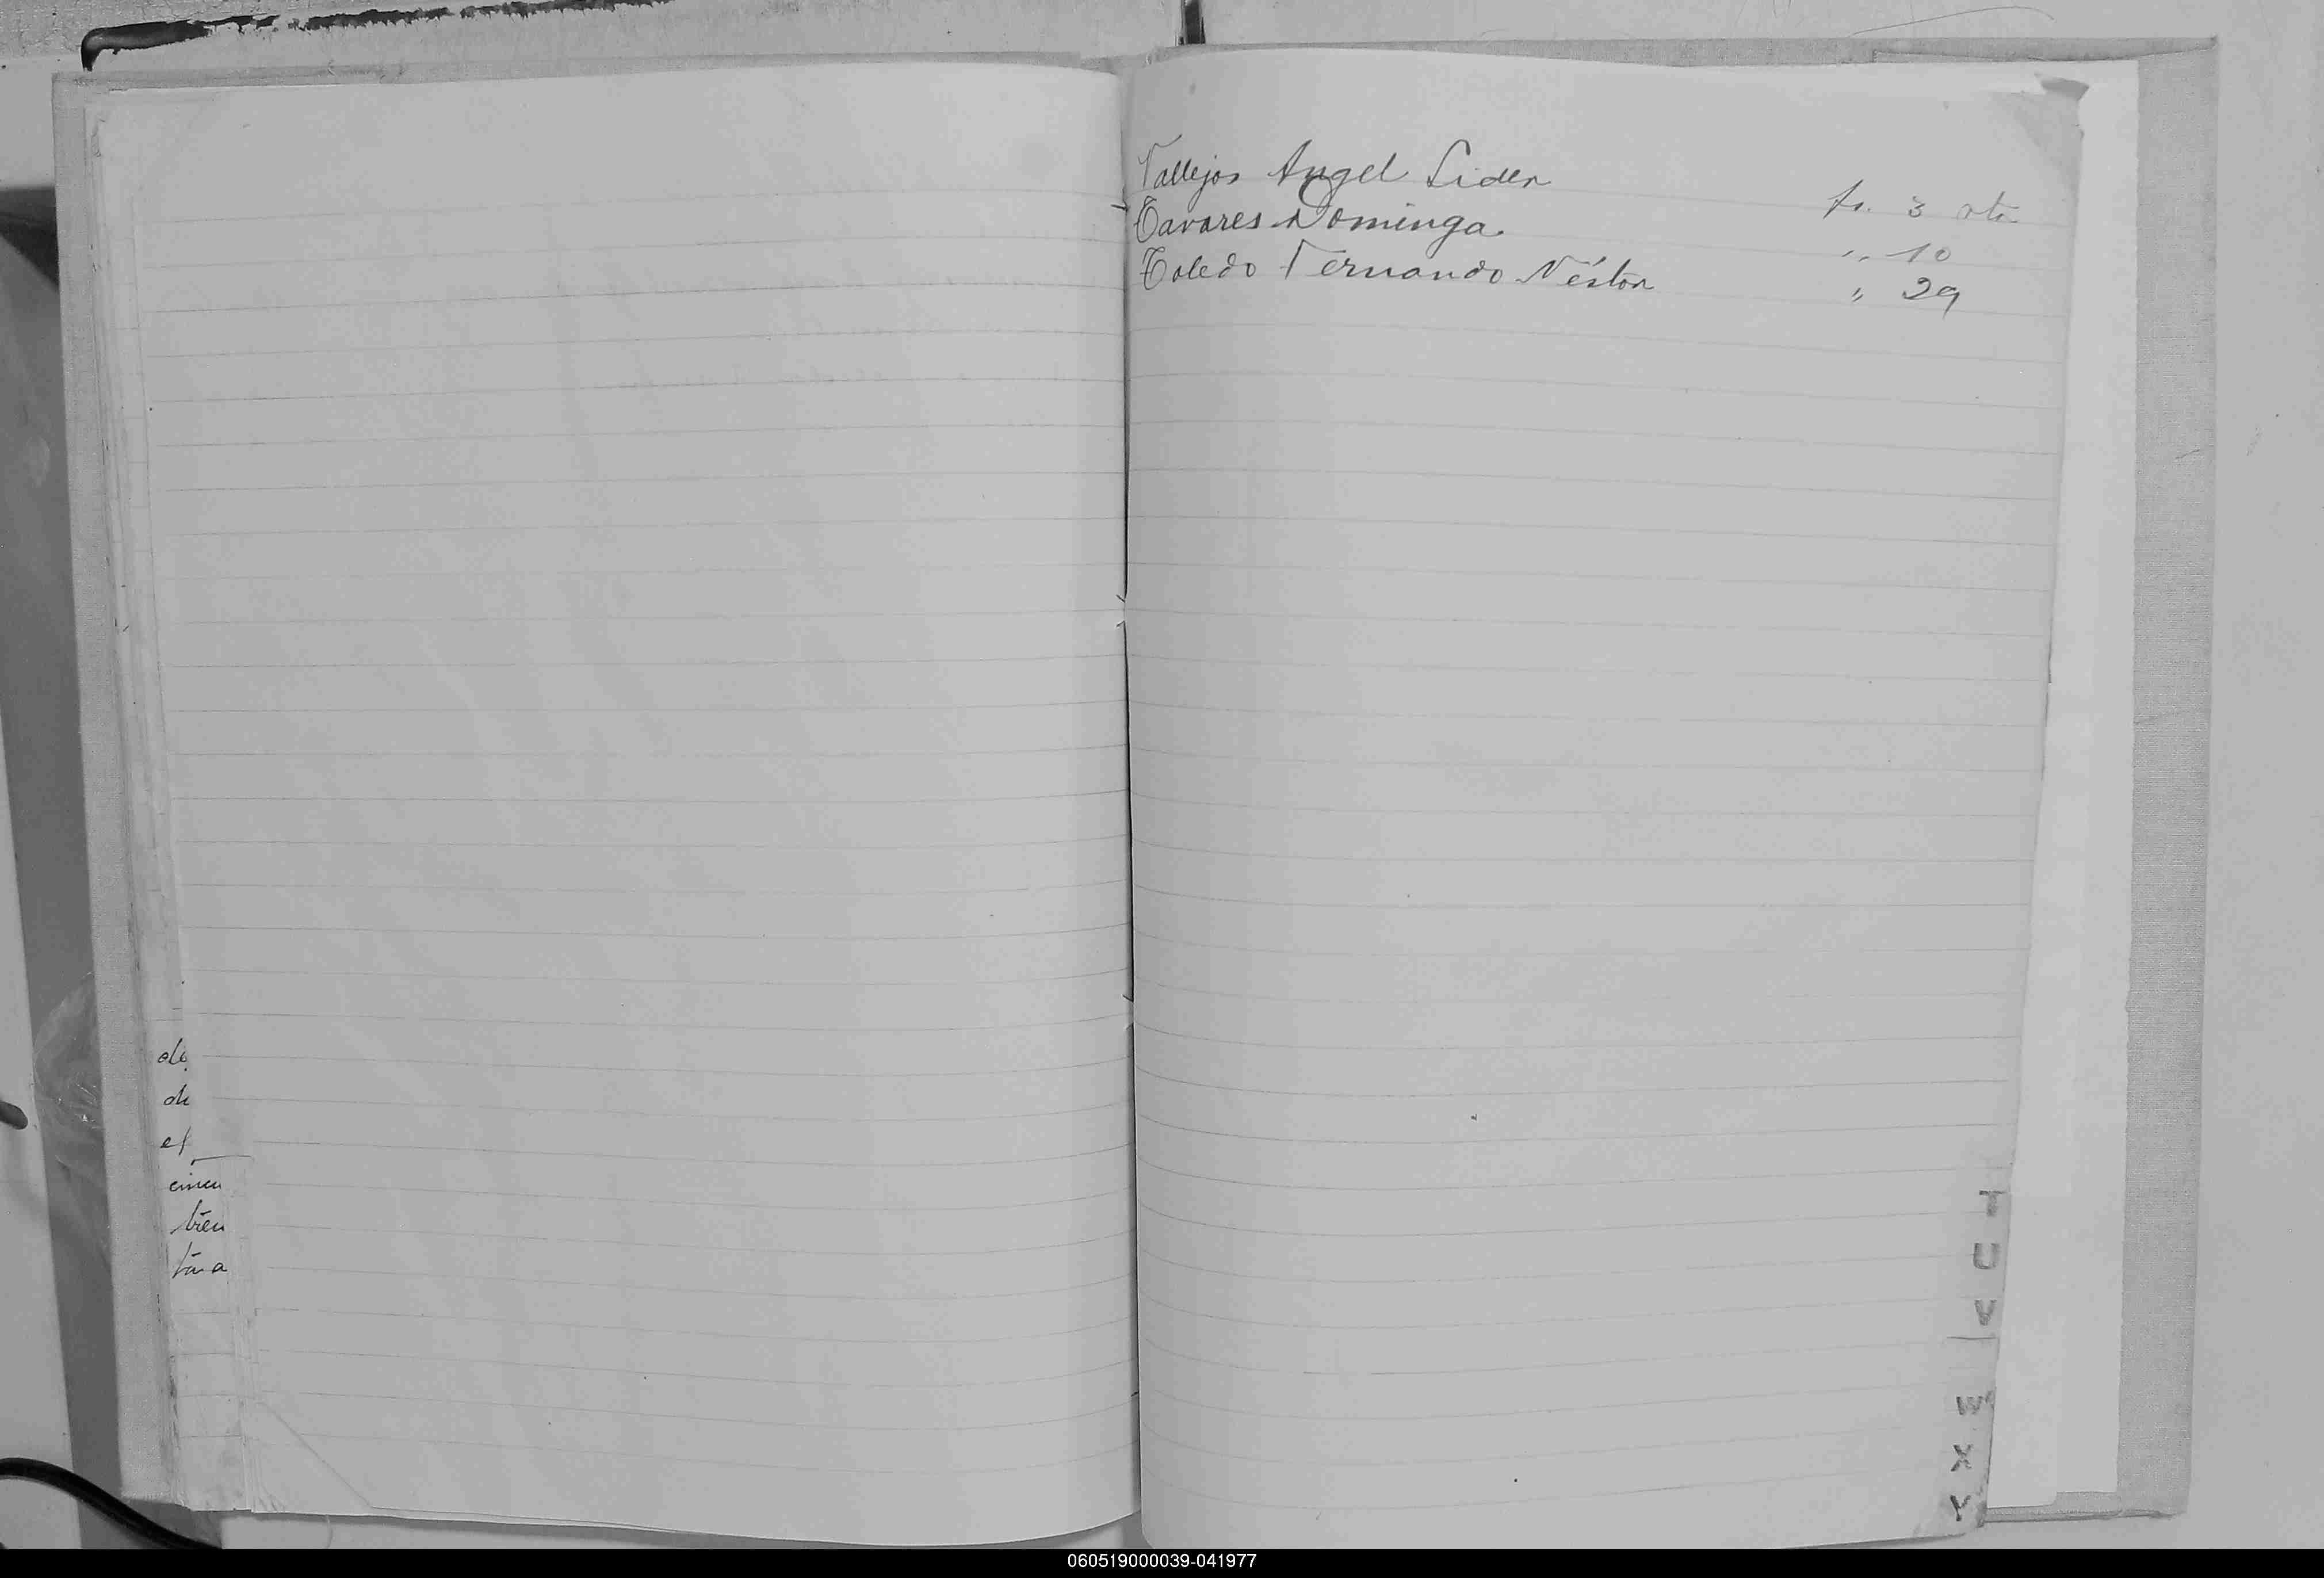 de
el
cincu
Vallejos Angel Lider fs. 3 vta
Tavares Dominga. " 10
Toledo Fernando Néstor " 29
T
U
V
W
X
Y
060519000039-041977